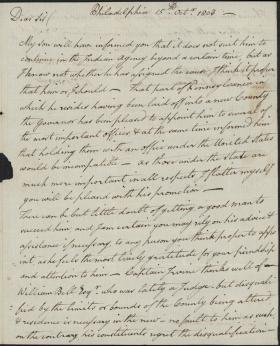 Philadelphia 15th Octr. 1803 —
Dear Sir/
My son will have informed you that it does not suit him to
continue in the Indian Agency beyond a certain time, but as
I know not whether he has assigned the cause, I think it proper
that him or I should — That part of Pennsylvania in
which he resides having been laid off into a new County
the Governor has been pleased to appoint him to several of
the most important offices & at the same time informed him
that holding them with an office under the United States
would be incompatible — as those under the State are
much more important in all respects I flatter myself
you will be pleased with his promotion —
There can be but little doubt of getting a good man to
succeed him and I am certain you may rely on his advice &
assistance if necessary to any person you think proper to appo
int as he feels the most lively gratitude for your friendship
and attention to him — Captain Irvine thinks well of
William Bell Esqr. who was lately a Judge but disquali
fied by the limits or bounds of the County being altered
& residence is necessary in the new — no fault to him as such
on the contrary his constituents regret the disqualification —